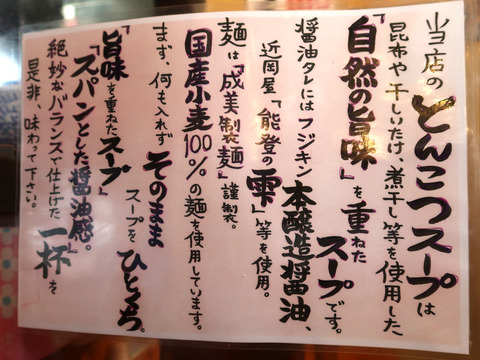 当店のとんこつスープは
昆布や干しいたけ、煮干し等を使用した
「自然の旨味」を重ねた
スープです。
醤油タレにはフジキン本醸造醤油、
近岡屋「能登の雫」等を使用。
麺は「成美製麺」謹製。
国産小麦100%の麺を使用しています。
まず、何も入れずそのまま
スープをひとくち。
「旨味を重ねたスープ」
「スパンとした醤油感。」
絶妙なバランスで仕上げた一杯を
是非、味わって下さい。